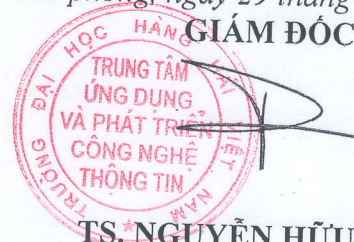 phòng, ngày 29 tháng
GIÁM ĐỐC
TRƯỜNG ĐẠI HỌC HÀNG HẢI VIỆT NAM
TRUNG TÂM
ỨNG DỤNG
VÀ PHÁT TRIỂN
CÔNG NGHỆ
THÔNG TIN
TS. NGUYỄN HỮU